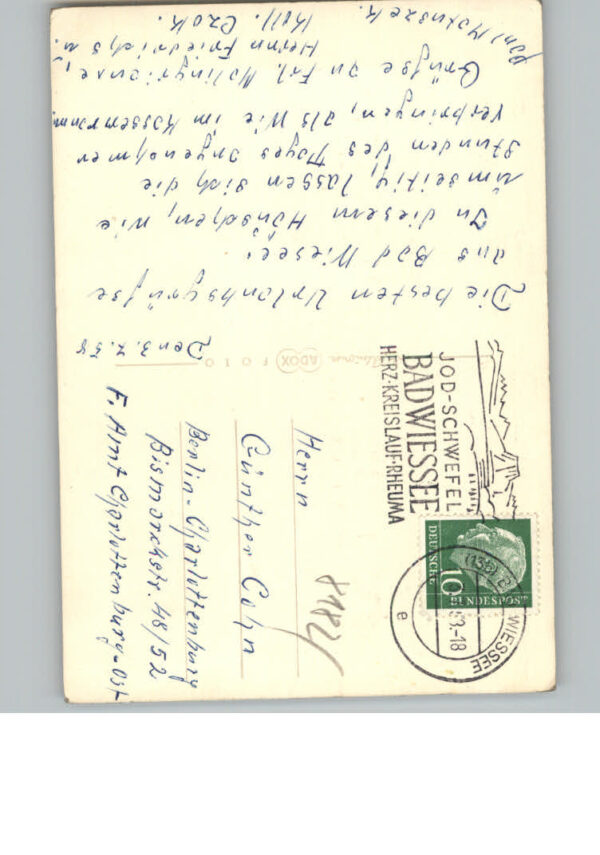 Den 3.7.58
Die besten Urlaubsgrüße
aus Bad Wiessee!
In diesem Häuschen, wie
umseitig, lassen sich die
Stunden des Tages angenehmer
verbringen, als wie im Kassenraum.
Grüße an Frl.
Herrn Friedrichs u.
Koll. Czok.
ADOX FOTO
JOD-SCHWEFEL
BAD WIESSEE
HERZ·KREISLAUF·RHEUMA
WIESSEE
-18
e
DEUTSCHE
BUNDESPOST
10
Herrn
Günther Cohn
Berlin-Charlottenburg
Bismarckstr. 48/52
F. Amt Charlottenburg-Ost